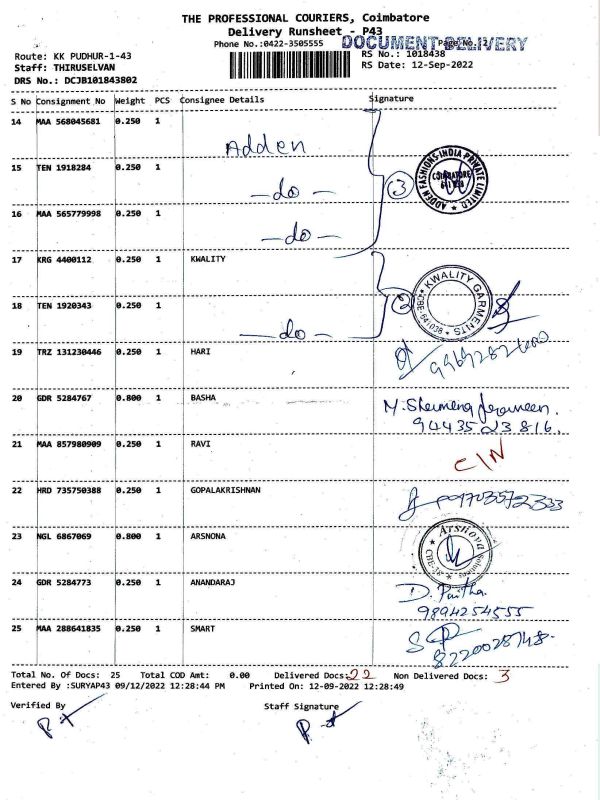 THE PROFESSIONAL COURIERS, Coimbatore
Delivery Runsheet - P43
Phone No.:0422-3505555 DOCUMENT DELIVERY Page No.:2
Route: KK PUDHUR-1-43 RS No.: 1018438
Staff: THIRUSELVAN RS Date: 12-Sep-2022
DRS No.: DCJB101843802
S No Consignment No Weight PCS Consignee Details Signature
14 MAA 568045681 0.250 1
Adden
15 TEN 1918284 0.250 1
-do-
3
ADDEN FASHIONS INDIA PRIVATE LIMITED
COIMBATORE
16 MAA 565779998 0.250 1
-do-
17 KRG 4400112 0.250 1 KWALITY
2
KWALITY GARMENTS
CBE-641038
18 TEN 1920343 0.250 1
-do-
19 TRZ 131230446 0.250 1 HARI
20 GDR 5284767 0.800 1 BASHA
9443523816.
21 MAA 857980909 0.250 1 RAVI
C/N
22 HRD 735750388 0.250 1 GOPALAKRISHNAN
23 NGL 6867069 0.800 1 ARSNONA
Arshova Solutions
24 GDR 5284773 0.250 1 ANANDARAJ
D.
9894254555
25 MAA 288641835 0.250 1 SMART
Total No. Of Docs: 25 Total COD Amt: 0.00 Delivered Docs: 22 Non Delivered Docs: 3
Entered By :SURYAP43 09/12/2022 12:28:44 PM Printed On: 12-09-2022 12:28:49
Verified By Staff Signature